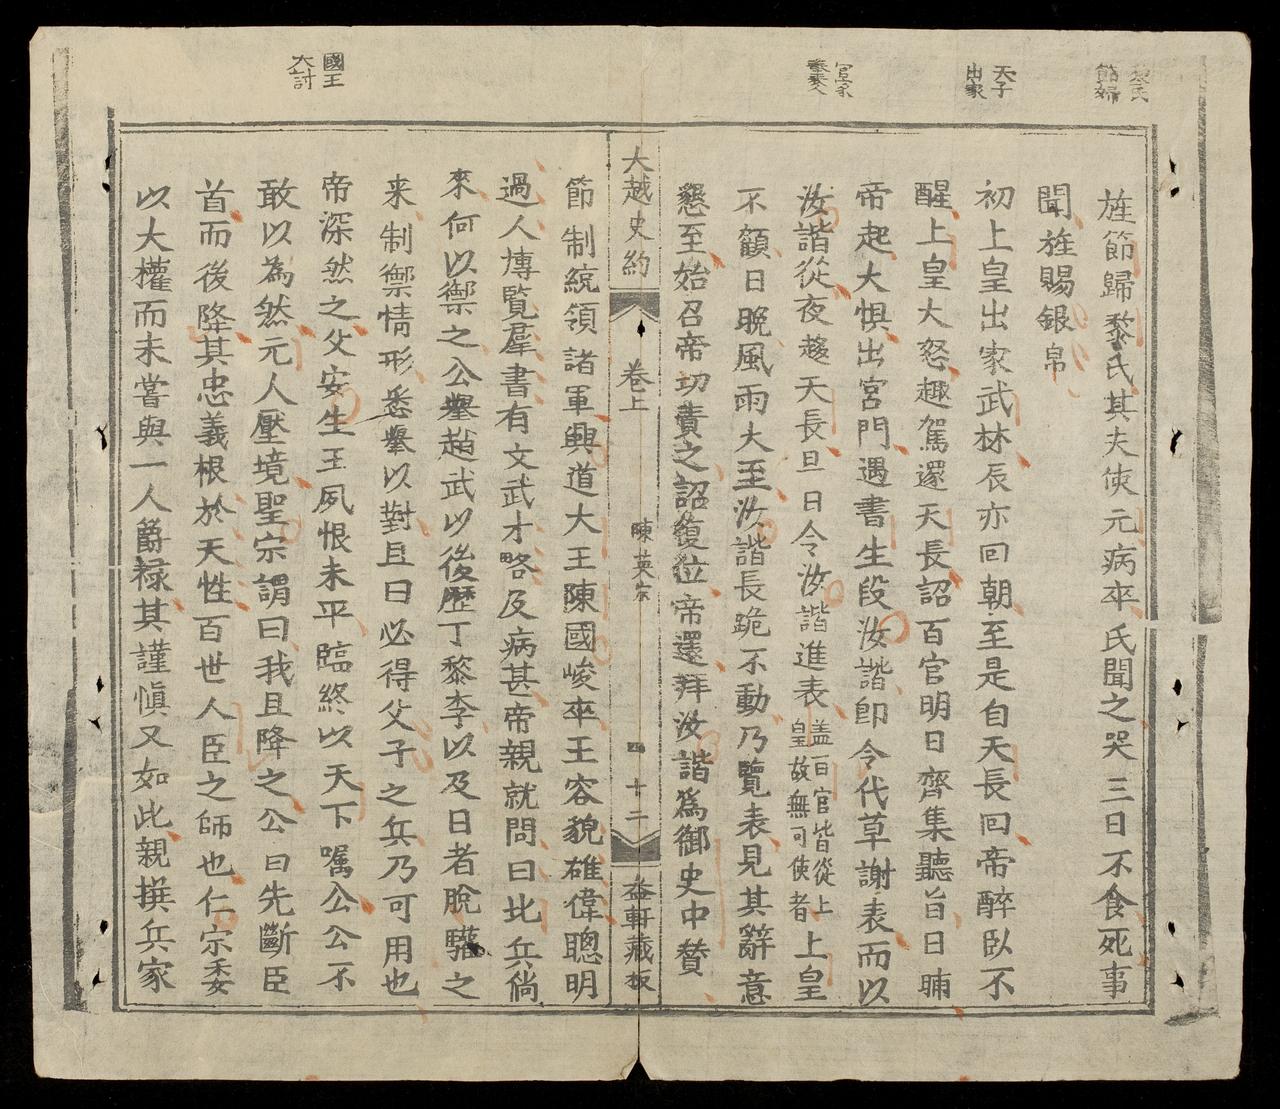 黎氏
節婦
天子
出家
官家
國王
大討
旌節歸黎氏其夫使元病卒氏聞之哭三日不食死事
聞旌賜銀帛
初上皇出家武林辰亦回朝至是自天長回帝醉臥不
醒上皇大怒趣駕還天長詔百官明日齊集聽旨日晡
帝起大惧出宮門遇書生段汝諧即令代草謝表而以
汝諧從夜趍天長旦日令汝諧進表盖百官皆從上
皇故無可使者上皇
不顧日晚風雨大至汝諧長跪不動乃覽表見其辭意
懇至始召帝切責之詔復位帝還拜汝諧爲御史中賛
大越史約
卷上
陳英宗
四 十二
益軒藏板
節制統領諸軍興道大王陳國峻卒王容貌雄偉聰明
過人博覽羣書有文武才略及病甚帝親就問曰北兵倘
來何以禦之公舉趙武以後歷丁黎李以及日者脫驩之
来制禦情形悉舉以對且曰必得父子之兵乃可用也
帝深然之父安生王夙恨未平臨終以天下囑公公不
敢以為然元人壓境聖宗謂曰我且降之公曰先斷臣
首而後降其忠義根於天性百世人臣之師也仁宗委
以大權而未嘗與一人爵祿其謹愼又如此親撰兵家